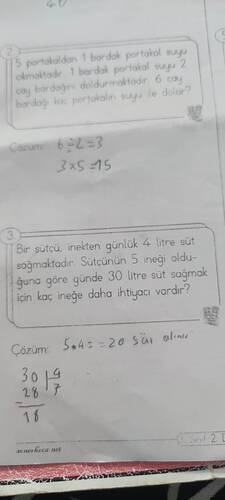 2
5 portakaldan 1 bardak portakal suyu
çıkmaktadır. 1 bardak portakal suyu 2
çay bardağını doldurmaktadır. 6 çay
bardağı kaç portakalın suyu ile dolar?
Çözüm: 6÷2=3
3×5=15
3
Bir sütçü, inekten günlük 4 litre süt
sağmaktadır. Sütçünün 5 ineği oldu-
ğuna göre günde 30 litre süt sağmak
için kaç ineğe daha ihtiyacı vardır?
Çözüm: 5×4= =20 süt
30 4
28 7
-
18